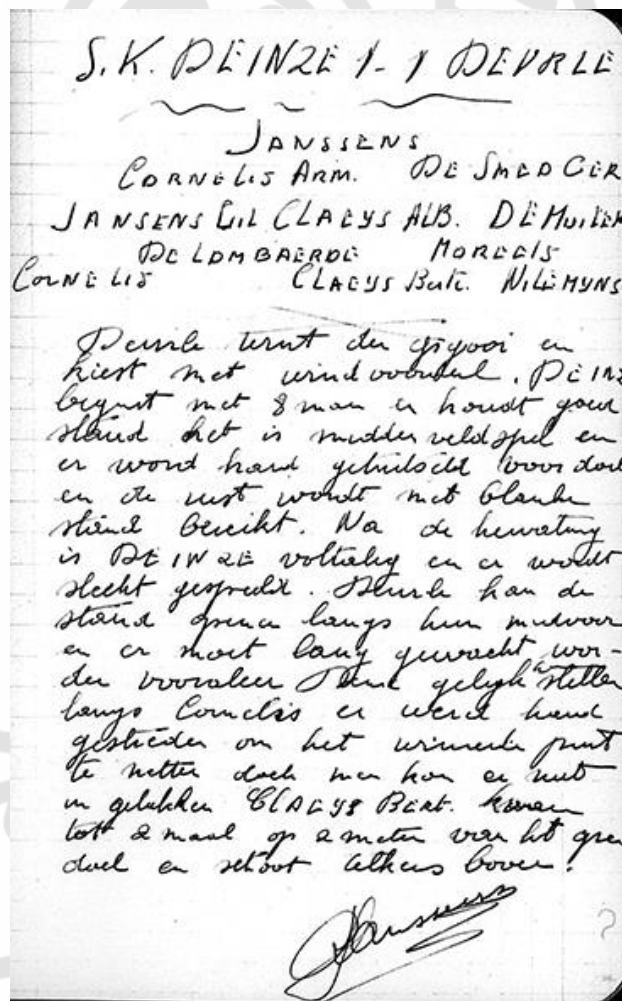 S.K. DEINZE 1 - 1 DEURLE
JANSSENS
CORNELIS ARM. DE SMED GER
JANSENS GIL CLAEYS ALB. DE MUILEM
DE LOMBAERDE MOREELS
CORNELIS CLAEYS Bert. WILEMYNS
Deurle wint den en
kiest met windvoordeel. DEINZ
begint met 8 man er houdt goed
stand het is middenveldspel en
er word hard voor doel
en de rust wordt met blanke
stand bereikt. Na de hervating
is DEINZE voltalig en er wordt
slecht gespeeld. Deurle kan de
stand openen langs hun midvoor
en er moet lang gewacht wor-
den vooraleer gelijk stellen
langs Cornelis er werd hard
gestreden om het winnende punt
te netten doch men kon er niet
in gelukken CLAEYS Bert. kwam
tot 2 maal op 2 meter van het
doel en schoot telkens boven.
Janssens